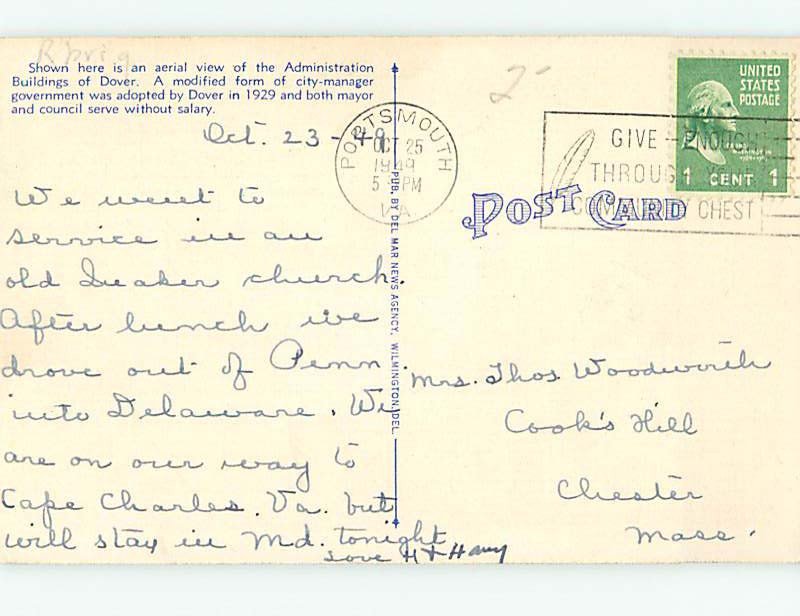 R'pri g
Shown here is an aerial view of the Administration
Buildings of Dover. A modified form of city-manager
government was adopted by Dover in 1929 and both mayor
and council serve without salary.
Oct. 23-49
We went to
service in an
old Quaker church.
After lunch we
drove out of Penn
into Delaware. We
are on our way to
Cape Charles, Va. but
will stay in Md. tonight
Love H + Harry
PUB. BY DEL MAR NEWS AGENCY, WILMINGTON, DEL.
PORTSMOUTH
OC 25
1949
5 PM
VA
2-
GIVE ENOUGH
THROUGH
COMMUNITY CHEST
UNITED
STATES
POSTAGE
1 CENT 1
POST CARD
Mrs. Thos. Woodworth
Cook's Hill
Chester
Mass.